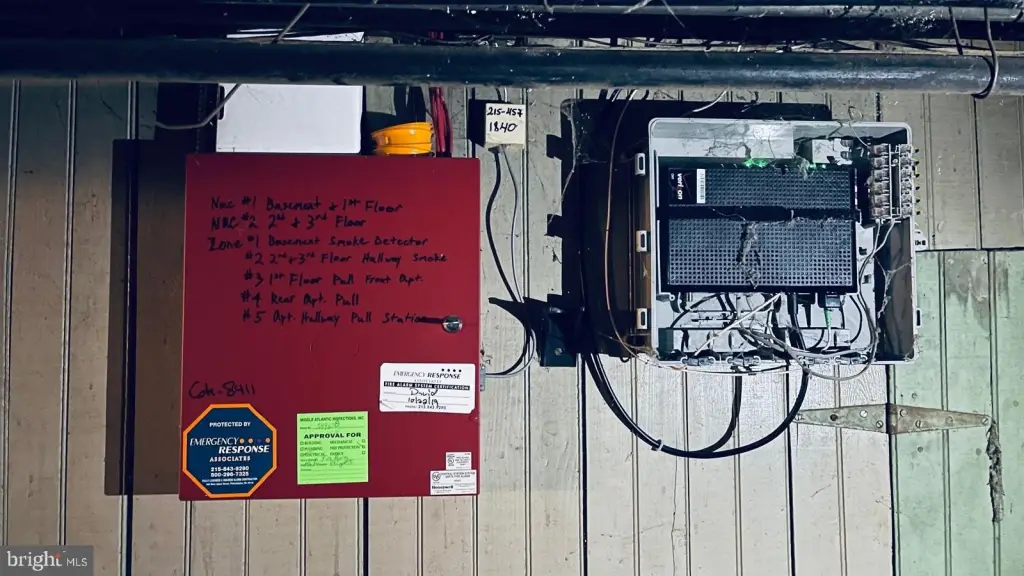 215-457
1840
verizon
NAC #1 Basement & 1st Floor
NAC #2 2nd & 3rd Floor
Zone #1 Basement Smoke Detector
#2 2nd & 3rd Floor Hallway Smoke
#3 1st Floor Pull Front Apt.
#4 Rear Apt. Pull
#5 Apt. Hallway Pull Station
8411
EMERGENCY RESPONSE
ASSOCIATES
FIRE ALARM SYSTEM CERTIFICATION
David
10/22/19
PHONE: 215.843.9290
PROTECTED BY
EMERGENCY
RESPONSE
ASSOCIATES
215-843-9290
800-296-7325
MIDDLE ATLANTIC INSPECTIONS, INC.
APPROVAL FOR
BUILDING
MECHANICAL
PLUMBING
FIRE PROTECTION
ELECTRICAL
Honeywell
bright MLS